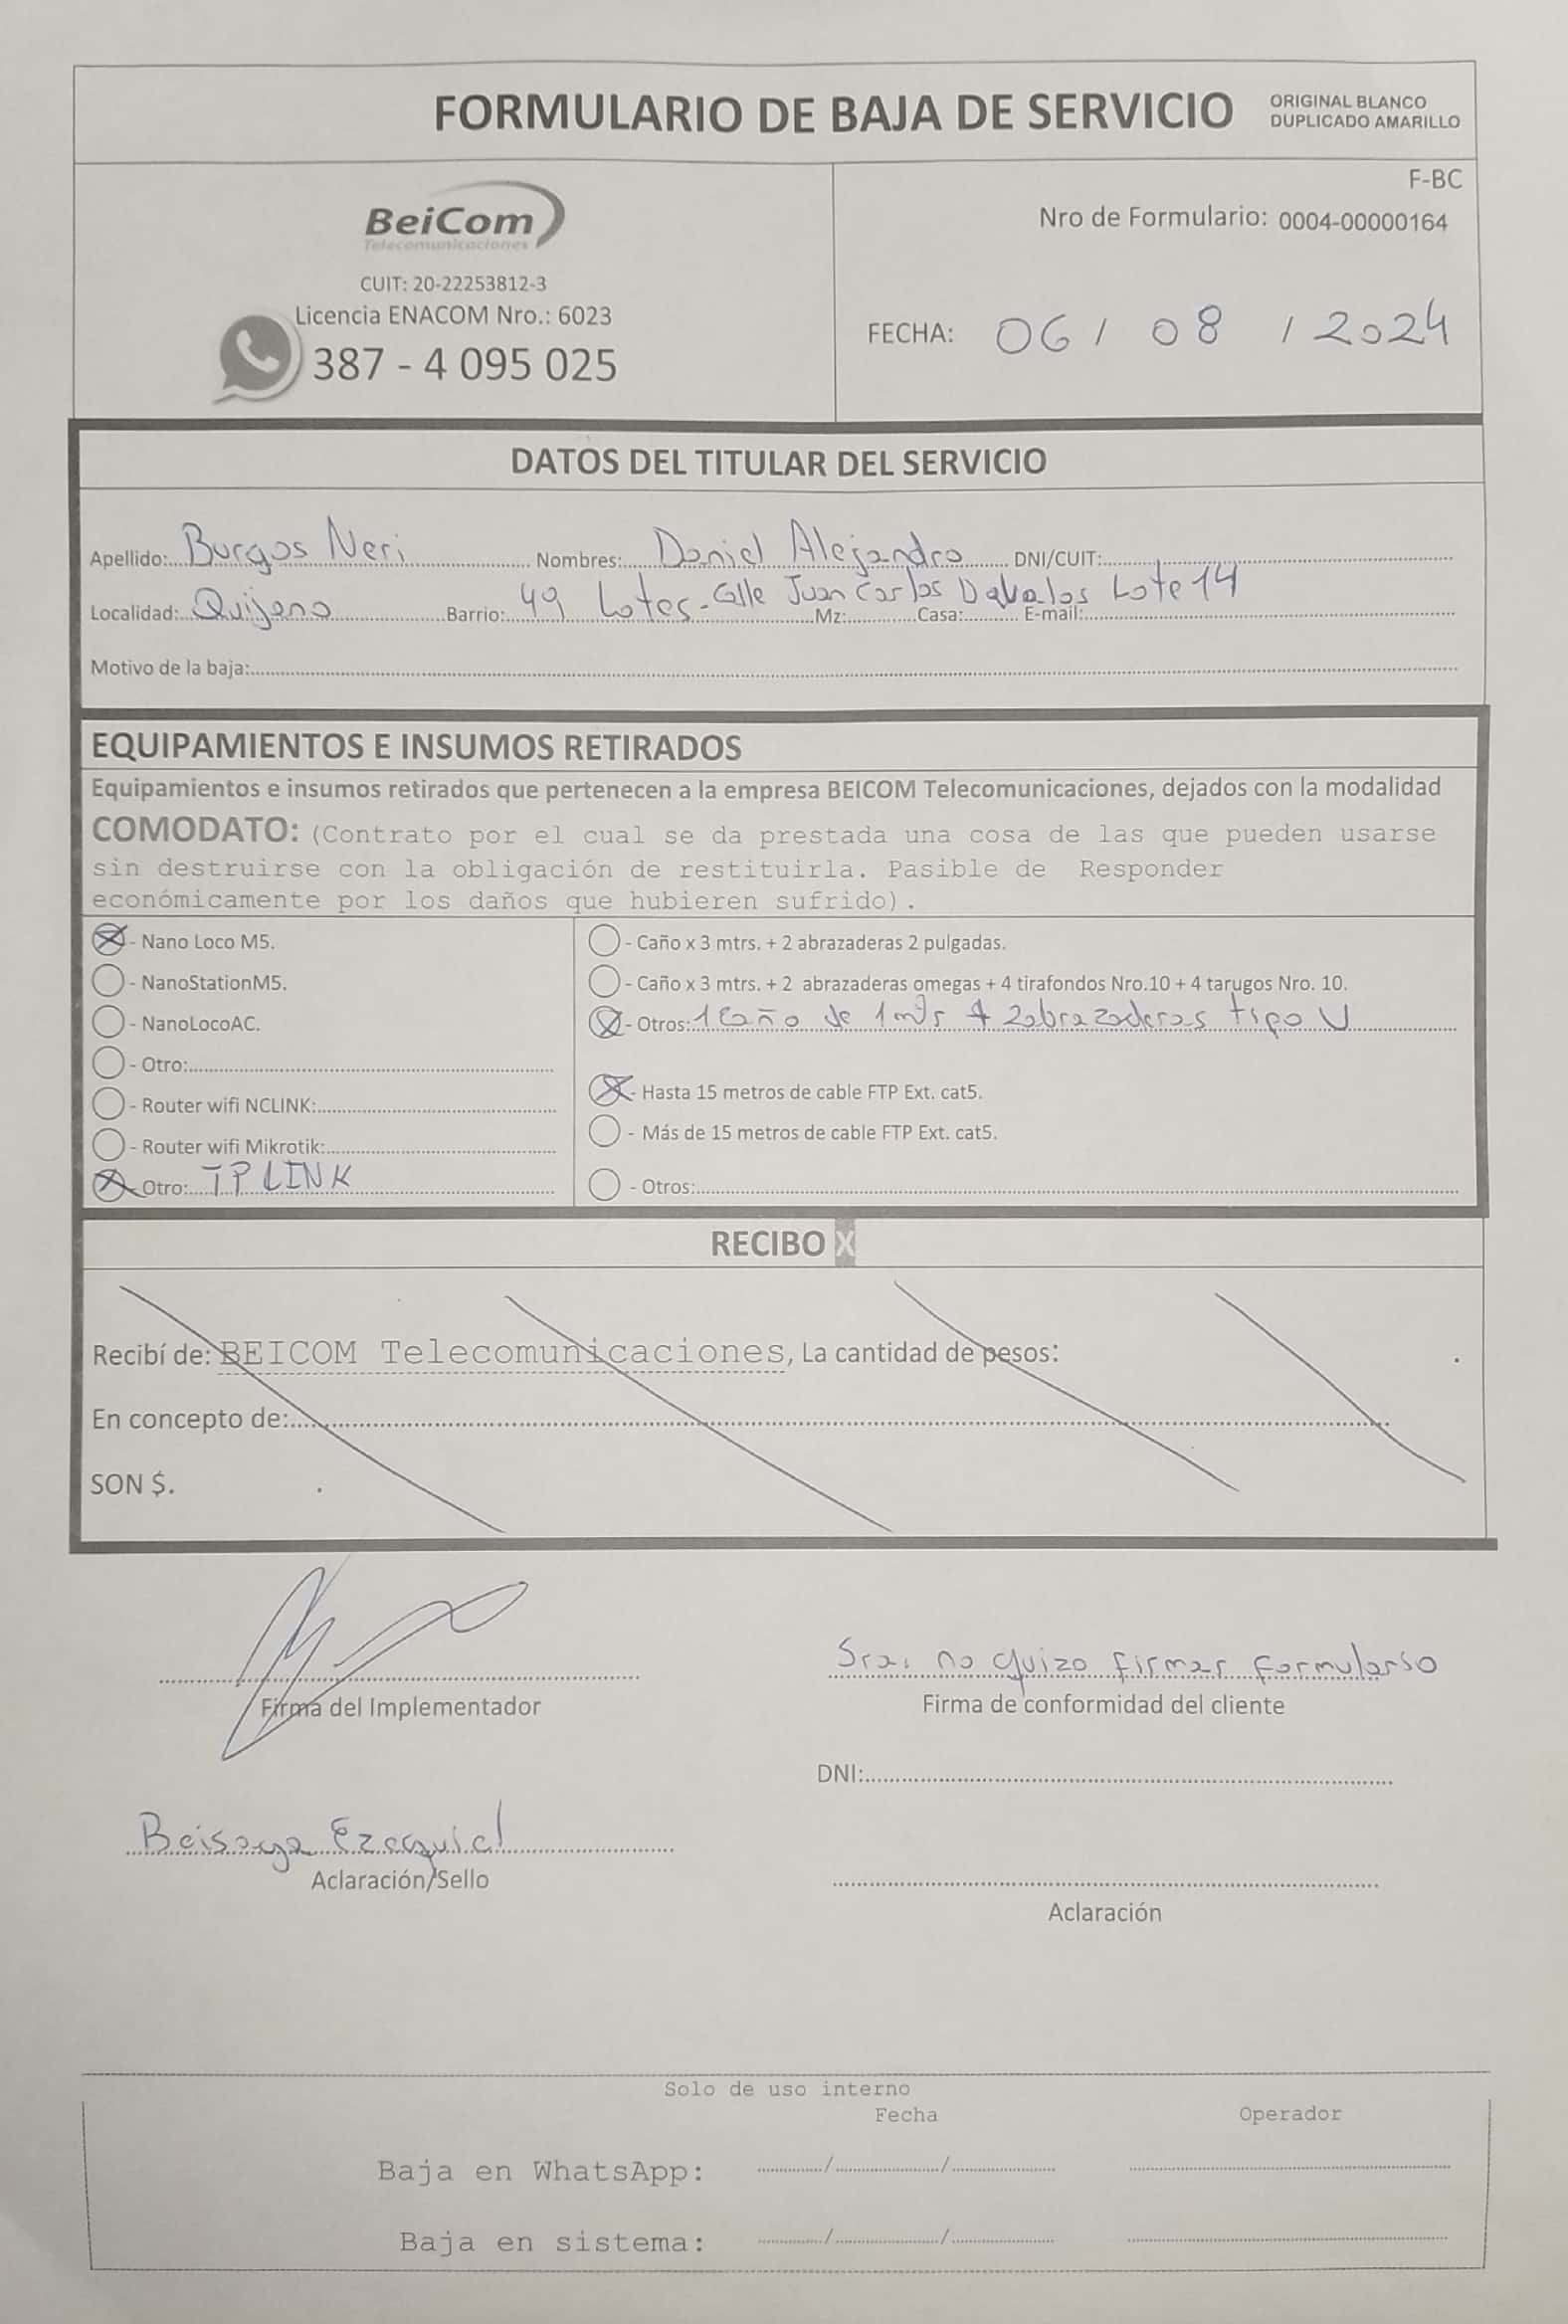 FORMULARIO DE BAJA DE SERVICIO
ORIGINAL BLANCO
DUPLICADO AMARILLO
BeiCom
Telecomunicaciones
CUIT: 20-22253812-3
Licencia ENACOM Nro.: 6023
387 - 4 095 025
F-BC
Nro de Formulario: 0004-00000164
FECHA: 06 / 08 / 2024
DATOS DEL TITULAR DEL SERVICIO
Apellido: Burgos Neri Nombres: Daniel Alejandro DNI/CUIT:
Localidad: Quijano Barrio: 49 Lotes - Calle Juan Carlos Davalos Lote 14 Mz: Casa: E-mail:
Motivo de la baja:
EQUIPAMIENTOS E INSUMOS RETIRADOS
Equipamientos e insumos retirados que pertenecen a la empresa BEICOM Telecomunicaciones, dejados con la modalidad
COMODATO: (Contrato por el cual se da prestada una cosa de las que pueden usarse
sin destruirse con la obligación de restituirla. Pasible de Responder
económicamente por los daños que hubieren sufrido).
- Nano Loco M5.
- NanoStationM5.
- NanoLocoAC.
- Otro:
- Router wifi NCLINK:
- Router wifi Mikrotik:
- Otro: TP LINK
- Caño x 3 mtrs. + 2 abrazaderas 2 pulgadas.
- Caño x 3 mtrs. + 2 abrazaderas omegas + 4 tirafondos Nro.10 + 4 tarugos Nro. 10.
- Otros: 1 Caño de 1 mts + 2 abrazaderas tipo U
- Hasta 15 metros de cable FTP Ext. cat5.
- Más de 15 metros de cable FTP Ext. cat5.
- Otros:
RECIBO X
Recibí de: BEICOM Telecomunicaciones, La cantidad de pesos:
En concepto de:
SON $.
Firma del Implementador
Sra. no quizo firmar formulario
Firma de conformidad del cliente
DNI:
Beisaga Ezequiel
Aclaración/Sello
Aclaración
Solo de uso interno
Fecha Operador
Baja en WhatsApp: / /
Baja en sistema: / /